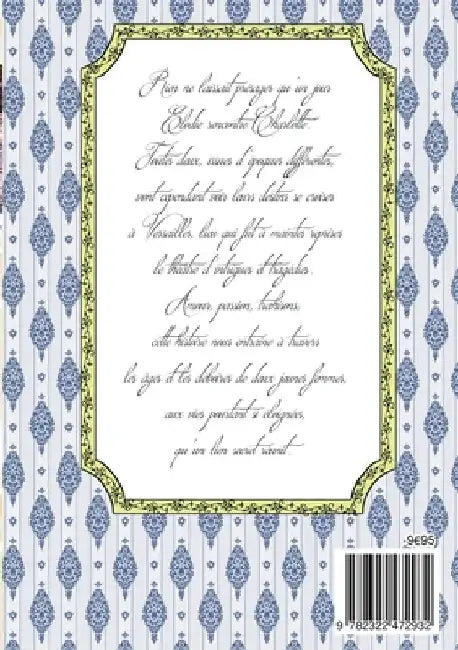 Rien ne laissait présager qu'un jour
Elodie rencontre Charlotte.
Toutes deux, issues d'époques différentes,
vont cependant voir leurs destins se croiser
à Versailles, lieu qui fût à maintes reprises
le théâtre d'intrigues et tragédies.
Amour, passion, trahisons,
cette histoire nous entraîne à travers
les âges et les déboires de deux jeunes femmes,
aux vies pourtant si éloignées,
qu'un lien secret réunit.
9€95
9 782322 472932